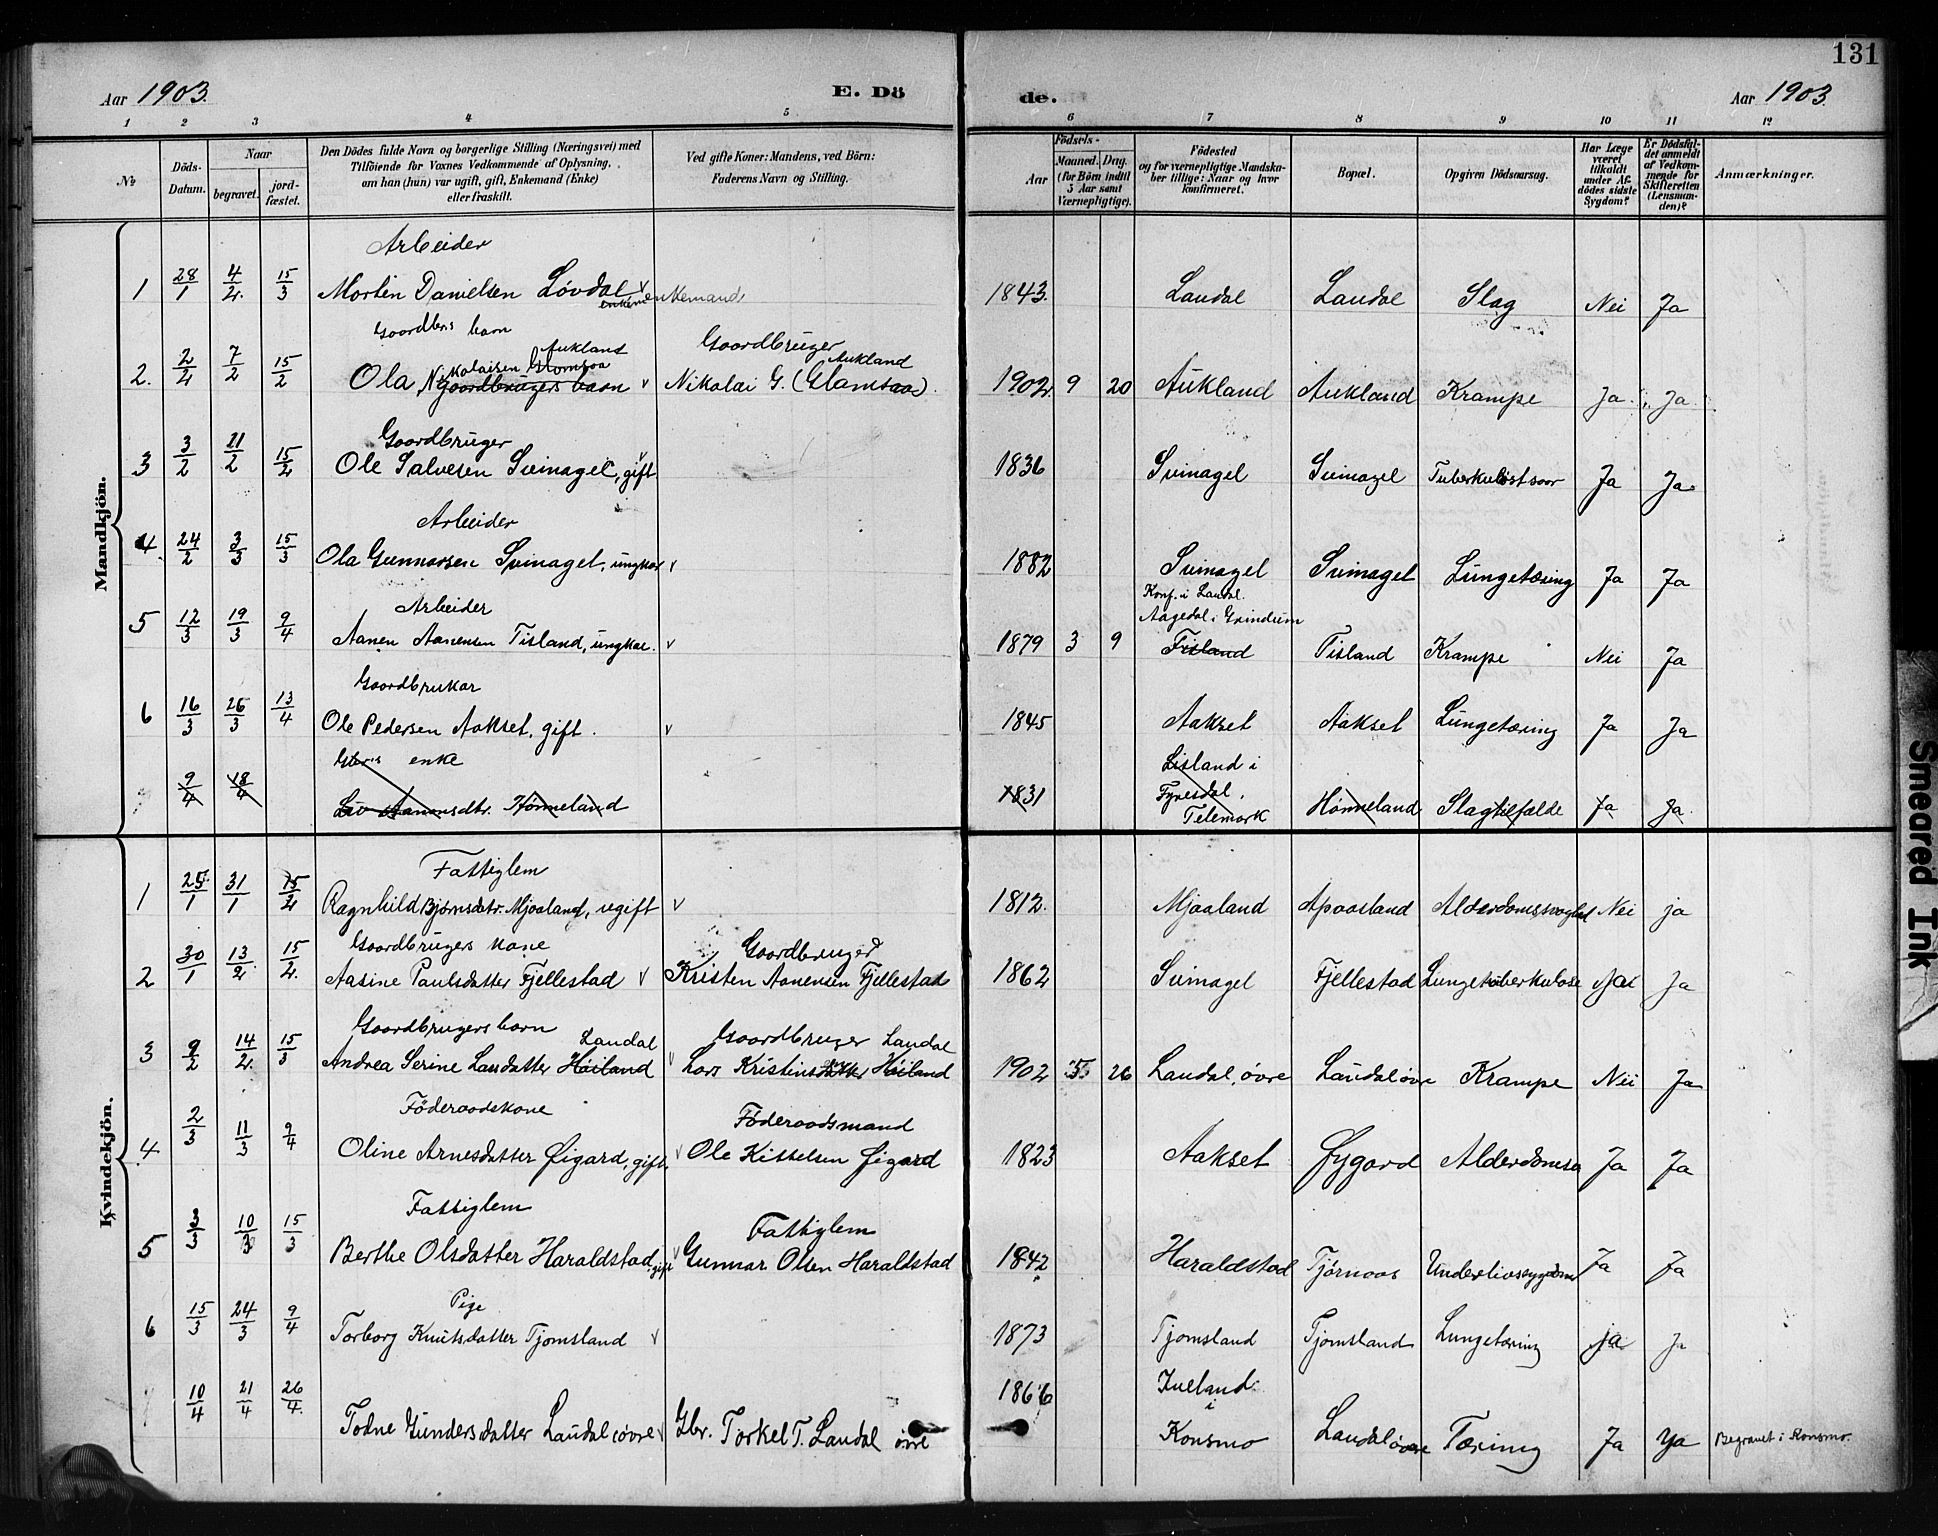 131
Aar 1903.
E. Dö
de.
Aar 1903.
1 2 3 4 5 6 7 8 9 10 11 12
№
Döds-Datum.
Naar
begravet.
jord-fæstet.
Den Dödes fulde Navn og borgerlige Stilling (Næringsvei) med
Tilföiende for Voxnes Vedkommende af Oplysning,
om han (hun) var ugift, gift, Enkemand (Enke)
eller fraskilt.
Ved gifte Koner: Mandens, ved Börn:
Faderens Navn og Stilling.
Födsels-
Aar
Maaned.
Dag.
(for Börn indtil
5 Aar samt
Værnepligtige).
Födested
og for værnepligtige Mandska-
ber tillige: Naar og hvor
konfirmeret.
Bopæl.
Opgiven Dödsaarsag.
Har Læge
været
tilkaldt
under Af-
dödes sidste
Sygdom?
Er Dödsfal-
det anmeldt
af Vedkom-
mende for
Skifteretten
(Lensman-
den)?
Anmærkninger.
Mandkjön.
Arbeider
1 28/1 4/2. 15/3 Morten Danielsen Løvdal enkemand 1843. Laudal Laudal Slag Nei Ja
Gaardbrs barn
Aukland
Gaardbruger
2. 2/2 7/2 15/2 Ola Nikolaisen Glomsaa Gaardbrugers barn v Nikolai G. (Glamsaa) Aukland 1902. 9 20 Aukland Aukland Krampe Ja. Ja.
Gaardbruger
3 3/2 21/2 15/2 Ole Salvesen Svinagel, gift 1836 Svinagel Svinagel Tuberkuløst saar Ja Ja
Arbeider
4 24/2 3/3 15/3 Ola Gunnarsen Svinagel, ungkar v 1882 Svinagel Svinagel Lungetæring Ja Ja
Konf. i Laudal.
Arbeider
Aagedal i Grindum
5 12/3 19/3 9/4 Aanen Aanensen Tisland, ungkar. v 1879 3 9 Tisland Tisland Krampe Nei Ja
Gaardbruker
6 16/3 26/3 13/4 Ole Pedersen Aakset, gift. v 1845 Aakset Aakset Lungetæring Ja Ja
Gbr.s enke
Lisland i
9/4 18/4 Liv Aanensdtr. Hønneland 1831 Fyresdal, Telemark Hønneland Slagtilfælde Ja Ja.
Kvindekjön.
Fattiglem
1 25/1 31/1 15/2 Ragnhild Bjørnsdatr. Mjaaland, ugift v 1812. Mjaaland Apaasland Nei ja
Gaardbrugers kone
Gaardbruger
2 30/1 13/2 15/2. Aasine Paulsdatter Fjellestad v Kristen Aanensen Fjellestad 1862 Svinagel Fjellestad Lungetuberkulose Ja Ja
Gaardbrugers barn
Laudal
Gaardbruger Laudal
3 9/2 14/2. 15/3 Andrea Serine Larsdatter Høiland v Lars Høiland 1902 5 26 Laudal, øvre Laudal øvre Krampe Nei Ja
Föderaadskone
Föderaadsmand
4 2/3 11/3 9/4 Oline Arnesdatter Øigard, gift, v Ole Kittelsen Øigard 1823 Aakset Øygard Ja Ja
Fattiglem
Fattiglem
5 3/3 10/3 15/3 Berthe Olsdatter Haraldstad, gift v Gunnar Olsen Haraldstad 1842 Haraldstad Tjørnaas Underlivssygdom Ja Ja
Pige
6 15/3 24/3 9/4 Torborg Knutsdatter Tjomsland v 1873 Tjomsland Tjomsland Lungetæring ja Ja
10/4 21/4 26/4. Todne Gundersdatter Laudal, øvre v Gbr. Torkel T. Laudal øvre 1866 Iueland i Konsmo Laudal øvre Tæring Ja Ja Begravet i Konsmo.
Smeared Ink